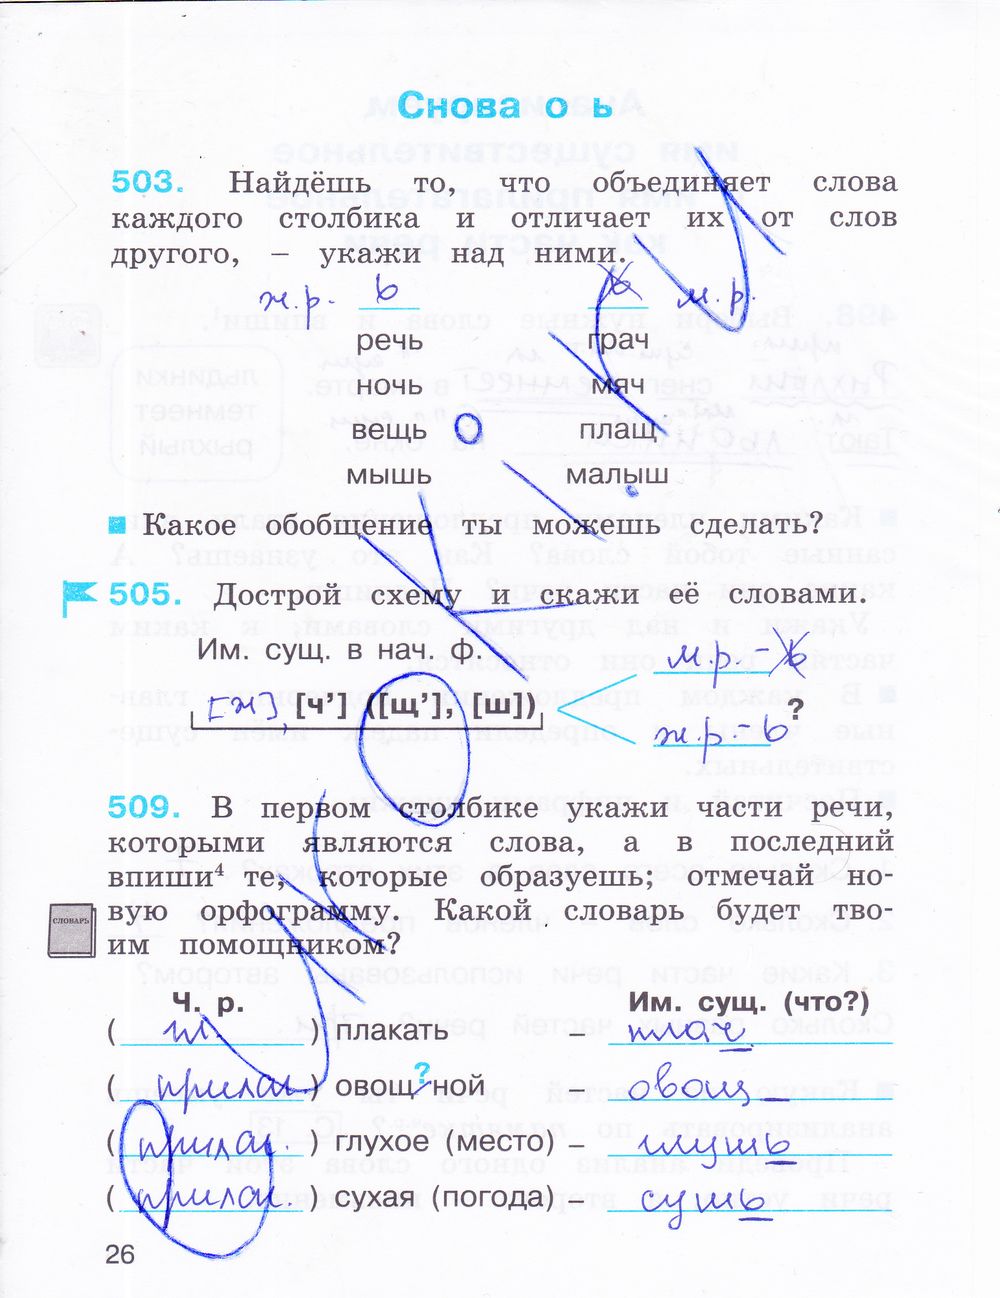 Снова о ь
503. Найдёшь то, что объединяет слова
каждого столбика и отличает их от слов
другого, – укажи над ними.
ж.р. ь ь м.р.
речь грач
ночь мяч
вещь плащ
мышь малыш
Какое обобщение ты можешь сделать?
505. Дострой схему и скажи её словами.
Им. сущ. в нач. ф.
м.р. - ь
[ж], [ч'] ([щ'], [ш]) ?
ж р - ь
509. В первом столбике укажи части речи,
которыми являются слова, а в последний
впиши⁴ те, которые образуешь; отмечай но-
вую орфограмму. Какой словарь будет тво-
СЛОВАРЬ
им помощником?
Ч. р. Им. сущ. (что?)
( гл. ) плакать – плач
( прилаг ) овощ?ной – овощ
( прилаг. ) глухое (место) –
( прилаг. ) сухая (погода) – сушь
26